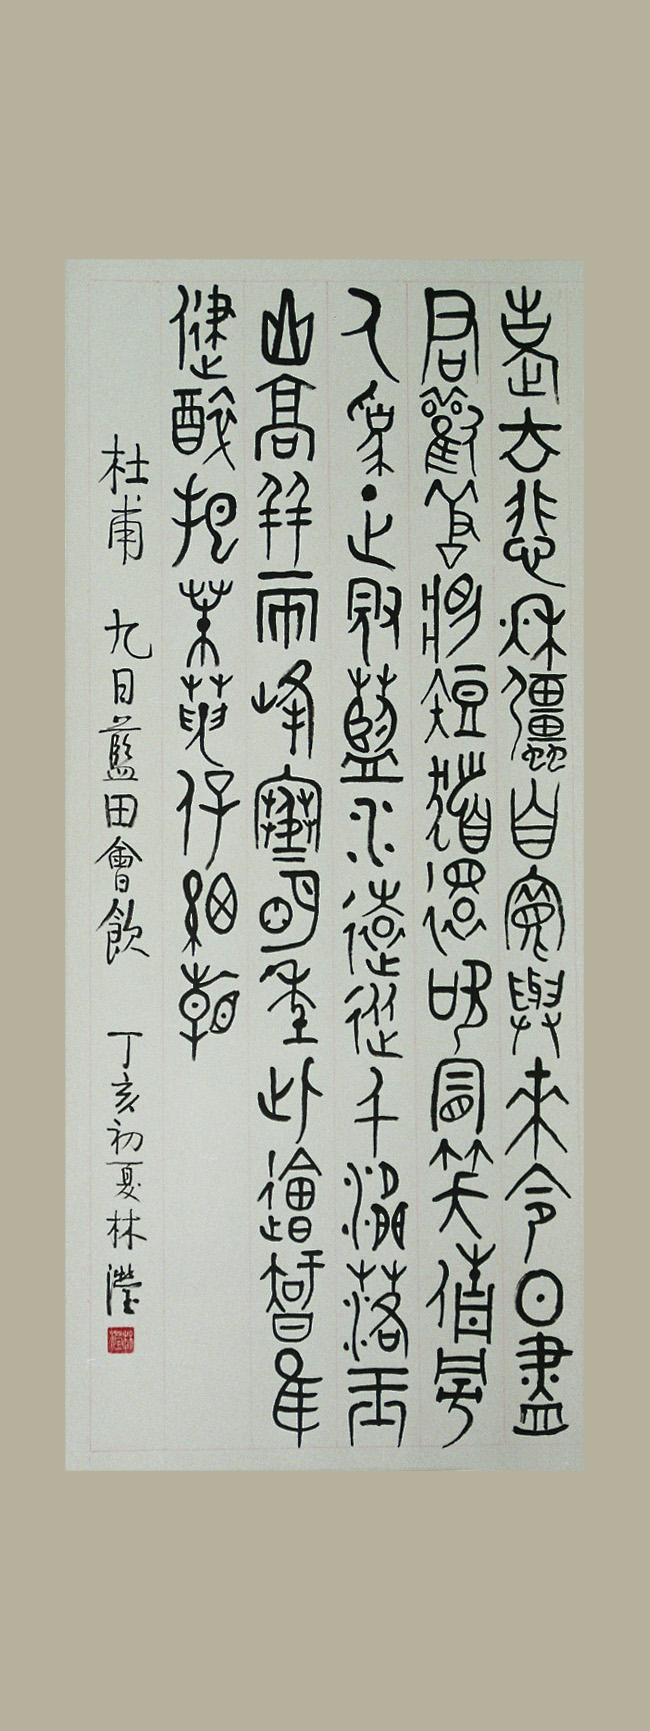 老去悲秋強自寬興來今日盡
君歡羞將短髮還吹冒笑倩旁
人為正冠藍水遠從千澗落玉
山高并兩峰寒明年此會知誰
健醉把茱萸仔細看
杜甫 九日藍田會飲 丁亥初夏林瀅